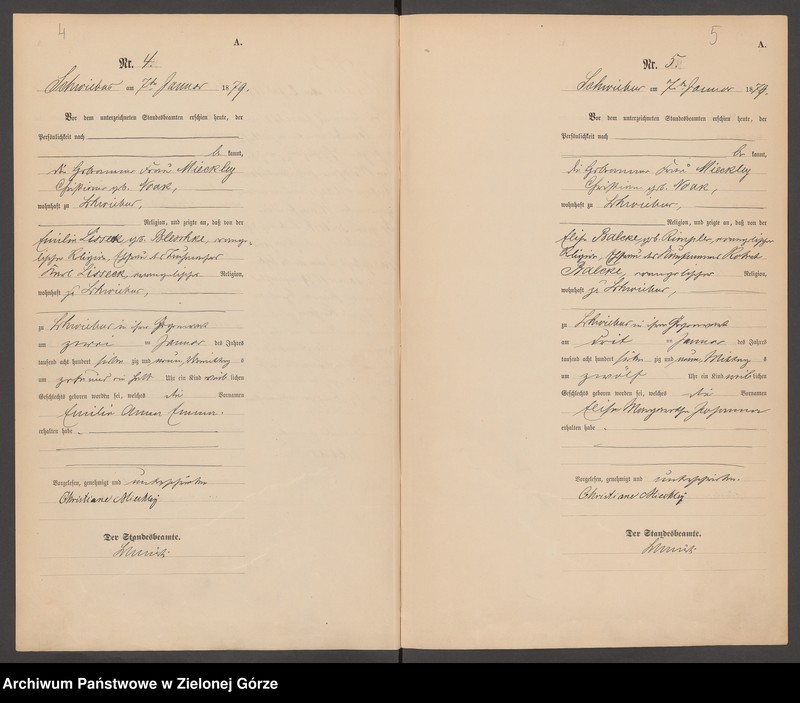 4
A.
Nr. 4.
Schwiebus am 7ten Januar 1879.
Vor dem unterzeichneten Standesbeamten erschien heute, der
Persönlichkeit nach
be kannt,
die Hebamme Frau Mieckley
Christiane geb. Noak,
wohnhaft zu Schwiebus,
Religion, und zeigte an, daß von der
Emilie Lisseck, geb. Bleschke, evange-
lischer Religion, Ehefrau des
Lisseck evangelischer Religion,
wohnhaft zu Schwiebus,
zu Schwiebus in ihrer Gegenwart
am zwei ten Januar des Jahres
tausend acht hundert sieben zig und neun, Vormittags
um zehn und ein halb Uhr ein Kind weib lichen
Geschlechts geboren worden sei, welches die Vornamen
Emilie Anna Emma.
erhalten habe.
Vorgelesen, genehmigt und unterschrieben
Christiane Mieckley
Der Standesbeamte.
5
A.
Nr. 5.
Schwiebus am 7ten Januar 1879.
Vor dem unterzeichneten Standesbeamten erschien heute, der
Persönlichkeit nach
be kannt,
die Hebamme Frau Mieckley
Christiane geb. Noak,
wohnhaft zu Schwiebus,
Religion, und zeigte an, daß von der
Elise Balcke, geb. Rimpler, evangelischer
Religion, Ehefrau des Kaufmanns Robert
Balcke, evangelischer Religion,
wohnhaft zu Schwiebus,
zu Schwiebus in ihrer Gegenwart
am drit ten Januar des Jahres
tausend acht hundert sieben zig und neun, Mittag s
um zwölf Uhr ein Kind weib lichen
Geschlechts geboren worden sei, welches die Vornamen
Elise Margarethe Johanna
erhalten habe.
Vorgelesen, genehmigt und unterschrieben.
Christiane Mieckley
Der Standesbeamte.
Archiwum Państwowe w Zielonej Górze